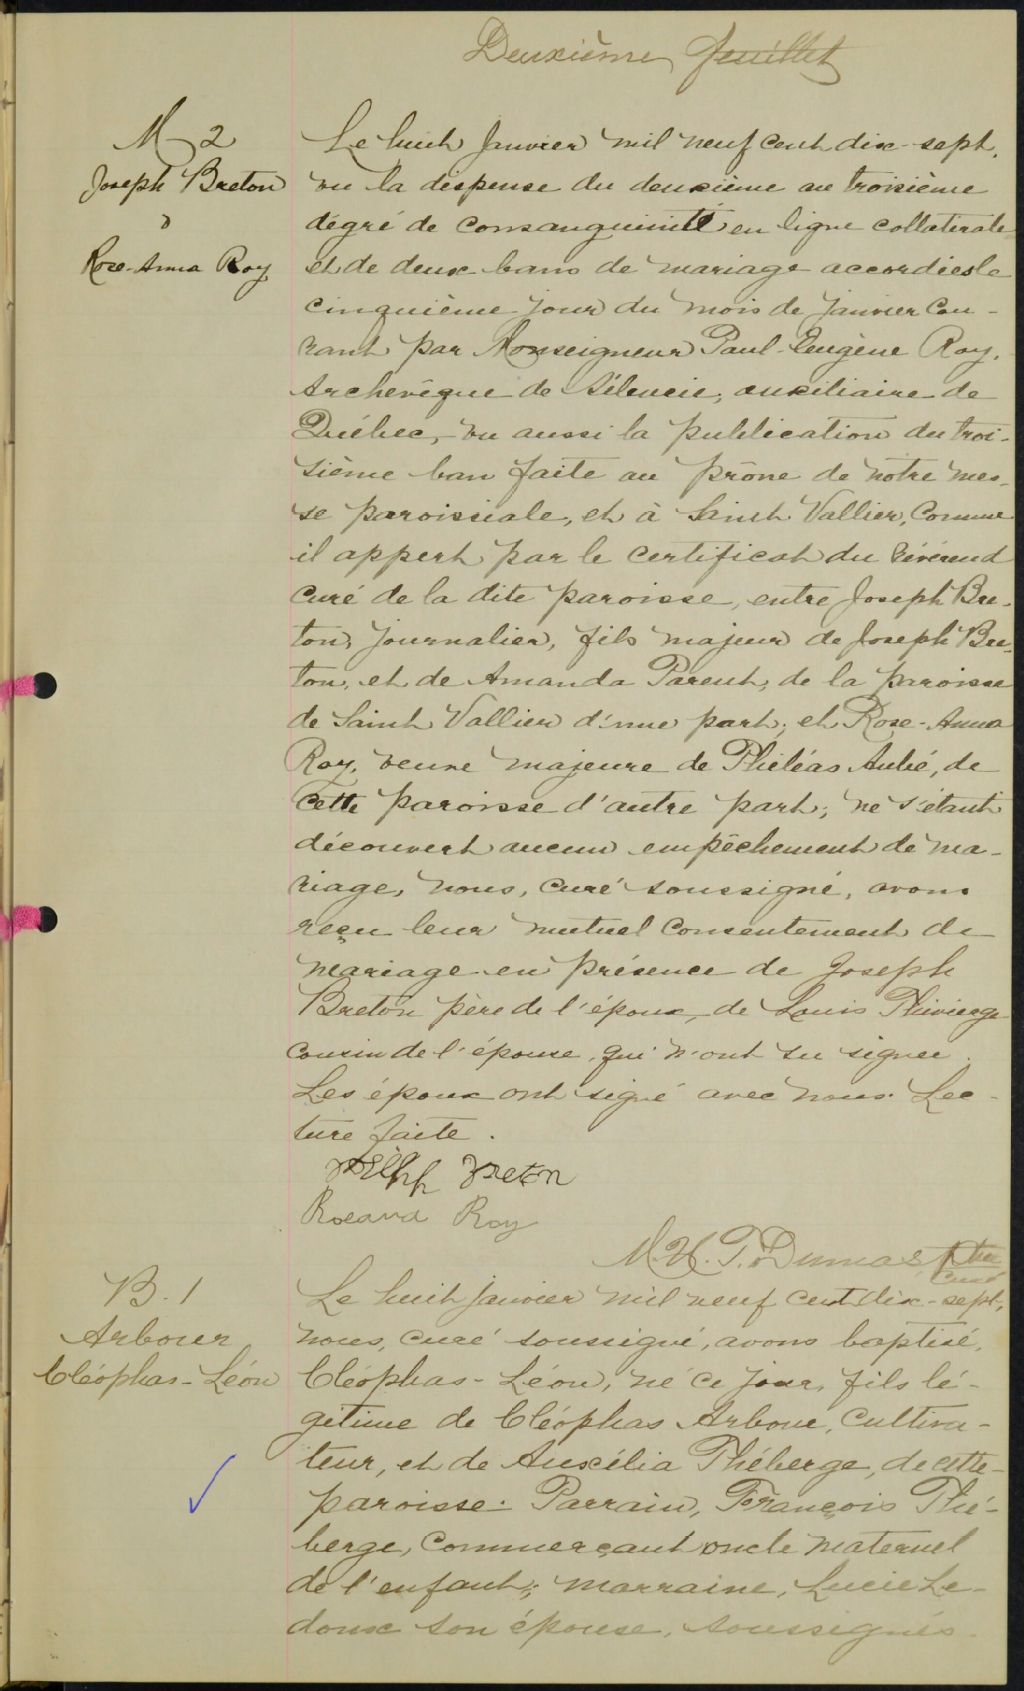 Deuxième feuillet
M 2
Joseph Breton
&
Rose-Anna Roy
Le huit Janvier mil neuf cent dix-sept,
vu la dispense du deuxième au troisième
dégré de consanguinité en ligne collatérale
et de deux bans de mariage accordées le
cinquième jour du mois de janvier cou-
rant par Monseigneur Paul-Eugène Roy,
Archevêque de Séleucie, auxiliaire de
Québec, vu aussi la publication du troi-
sième ban faite au prône de notre mes-
se paroissiale, et à Saint Vallier, comme
il appert par le certificat du révérend
curé de la dite paroisse, entre Joseph Bre-
ton, journalier, fils majeur de Joseph Bre-
ton, et de Amanda Parent, de la paroisse
de Saint Vallier d'une part; et Rose-Anna
Roy, veuve majeure de Philéas Aubé, de
cette paroisse d'autre part; ne s'étant
découvert aucun empêchement de ma-
riage, nous, curé soussigné, avons
reçu leur mutuel consentement de
mariage en présence de Joseph
Breton père de l'époux, de Louis Thivierge
cousin de l'épouse, qui n'ont su signer.
Les époux ont signé avec nous. Lec-
ture faite.
Joseph Breton
Roseanna Roy
M. H. T. Dumas ptre
curé
B. 1
Arbour
Cléophas-Léon
Le huit janvier mil neuf cent dix-sept,
nous, curé soussigné, avons baptisé,
Cléophas-Léon, né ce jour, fils lé-
gitime de Cléophas Arbour, cultiva-
teur, et de Auxélia Théberge, de cette
paroisse. Parrain, François Thé-
berge, commerçant oncle maternel
de l'enfant; marraine, Lucie Le-
doux son épouse, soussignés.